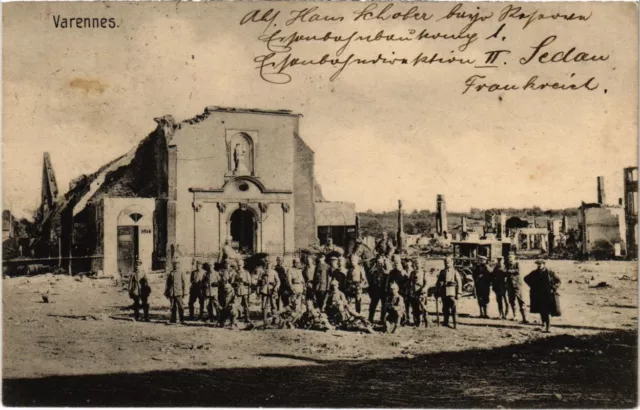 Varennes.
Abs. Hans Schober bayr Reserve
Eisenbahnbaukomp 1.
Eisenbahndirektion II. Sedan
Frankreich.
1914